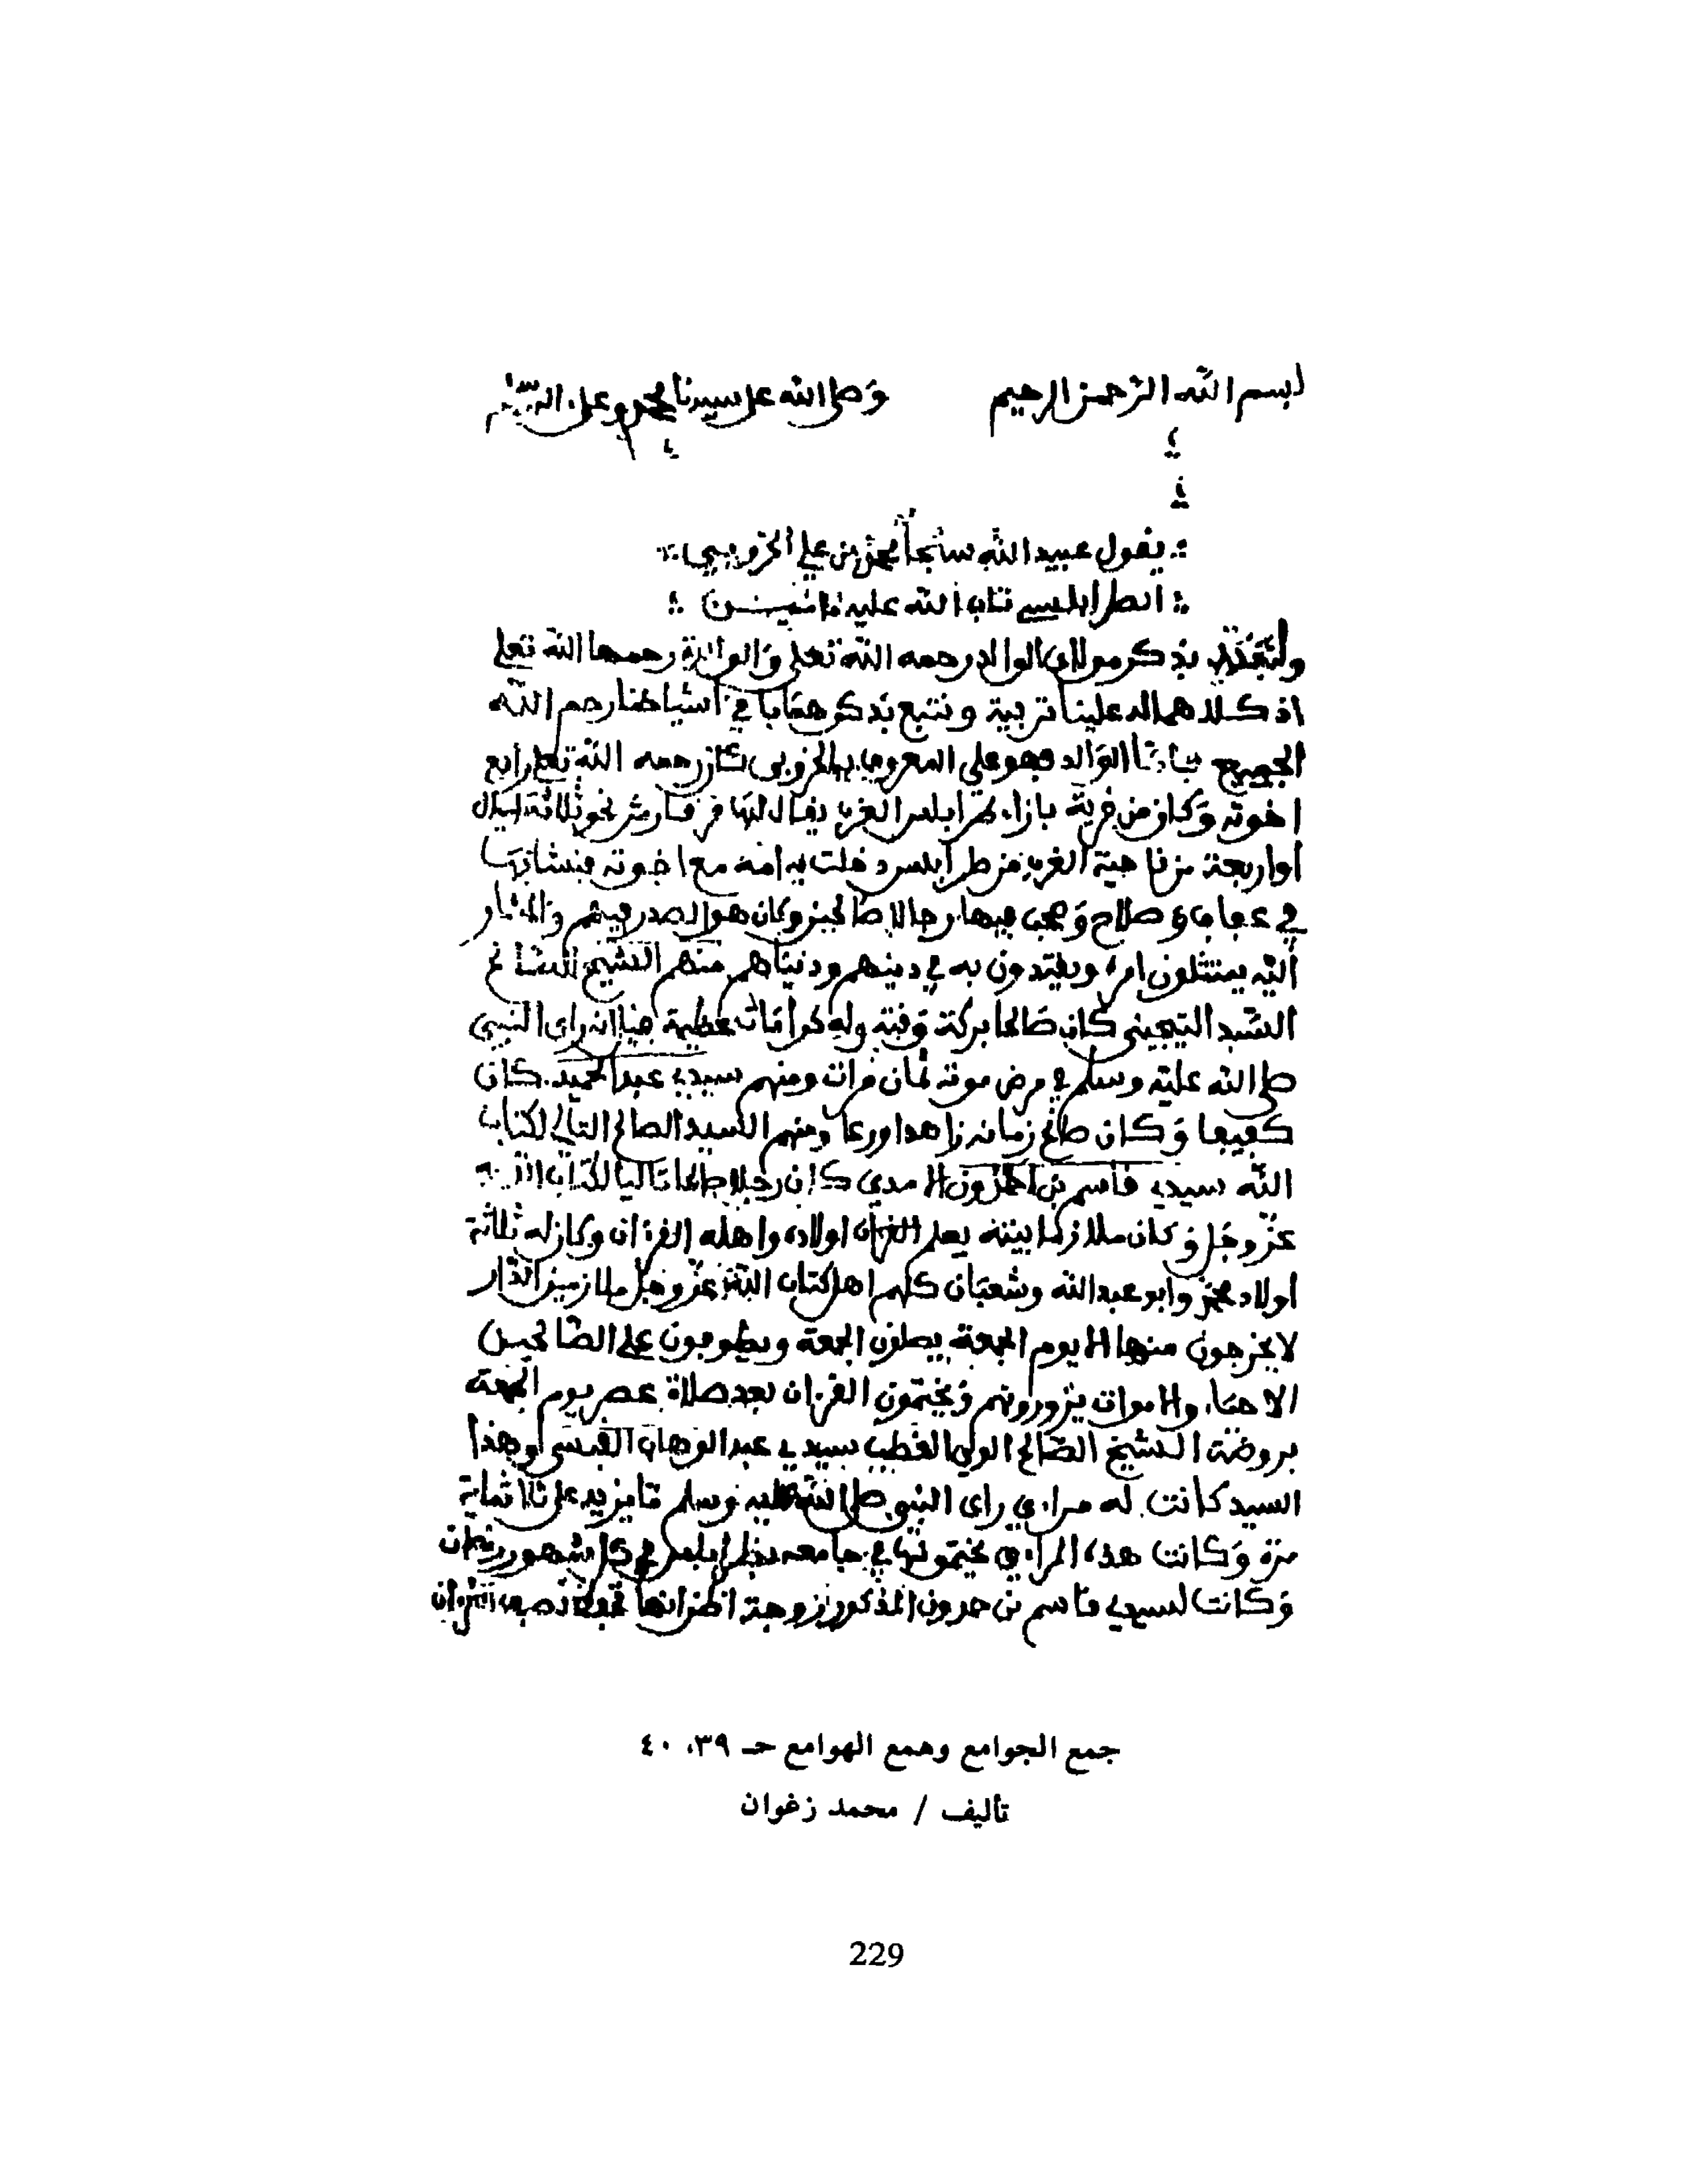 بسم الله الرحمن الرحيم وصلى الله على سيدنا محمد وعلى
يقول عبيد الله محمد بن علي الخروبي
الطرابلسي تاب الله عليه ءامين
بذكر مولاي الوالد رحمه الله تعلى والوالدة رحمها الله تعلى
اذ كلاهما له علينا تربية ونتبع بذكرهما باقي اشياخنا رحم الله
الجميع الوالد فهو علي المعروف بالخروبي كان رحمه الله تعلى رابع
اخوته وكان من قرية بازاء طرابلس الغرب يقال لها قرقارش نحو ثلاثة اميال
او اربعة من ناحية الغرب من طرابلس دخلت به امه مع اخوته فنشا بها
في عفاف وصلاح وصحب فيها رجالا صالحين وكان هو الصدر فيهم والمشار
اليه يمتثلون امره ويقتدون به في دينهم ودنياهم منهم الشيخ الصالح
السيد التجيني كان صالحا بركة وقته وله كرامات عظيمة انه راى النبي
صلى الله عليه وسلم في مرض موته ثمان مرات ومنهم سيدي عبد الحميد كان
كفيفا وكان صالح زمانه زاهدا ورعا ومنهم السيد الصالح التالي لكتاب
الله سيدي قاسم بن كان رجلا صالحا تاليا لكتاب الله
عز وجل وكان ملازما بيته يعلم القرءان اولاده واهله القرءان وكان له ثلاثة
اولاد محمد وابو عبد الله وشعبان كلهم اهل كتاب الله عز وجل ملازمين الدار
لا يخرجون منها الا يوم الجمعة يصلون الجمعة ويطوفون على الصالحين
الاحياء والاموات يزورونهم ويختمون القرءان بعد صلاة عصر يوم الجمعة
بروضة الشيخ الصالح الولي القطب سيدي عبد الوهاب القيسي وهذا
السيد كانت له مراءي راى النبي صلى الله عليه وسلم ما يزيد على ثلاثماية
مرة وكانت هذه المراءي يختمونها في جامعه بطرابلس في كل شهور رمضان
وكانت لسيدي قاسم بن حمدون المذكور زوجة اظن انها تحفظ نصف القرءان
جمع الجوامع وهمع الهوامع حـ ٣٩، ٤٠
تأليف / محمد زغوان
229